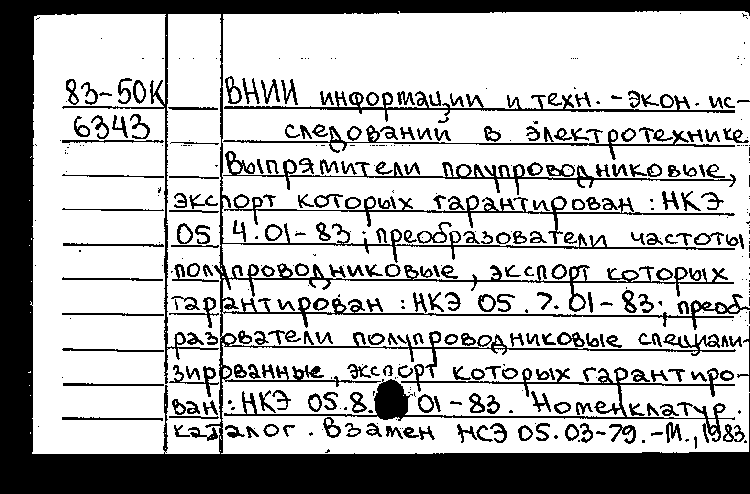 83-50К ВНИИ информации и техн.-экон. ис-
6343 следований в электротехнике
Выпрямители полупроводниковые,
экспорт которых гарантирован : НКЭ
05 4.01-83 ; преобразователи частоты
полупроводниковые, экспорт которых
гарантирован : НКЭ 05.7.01-83 ; преоб-
разователи полупроводниковые специали-
зированные, экспорт которых гарантиро-
ван : НКЭ 05.8. 01-83. Номенклатур.
каталог. Взамен НСЭ 05.03-79.-М., 1983.